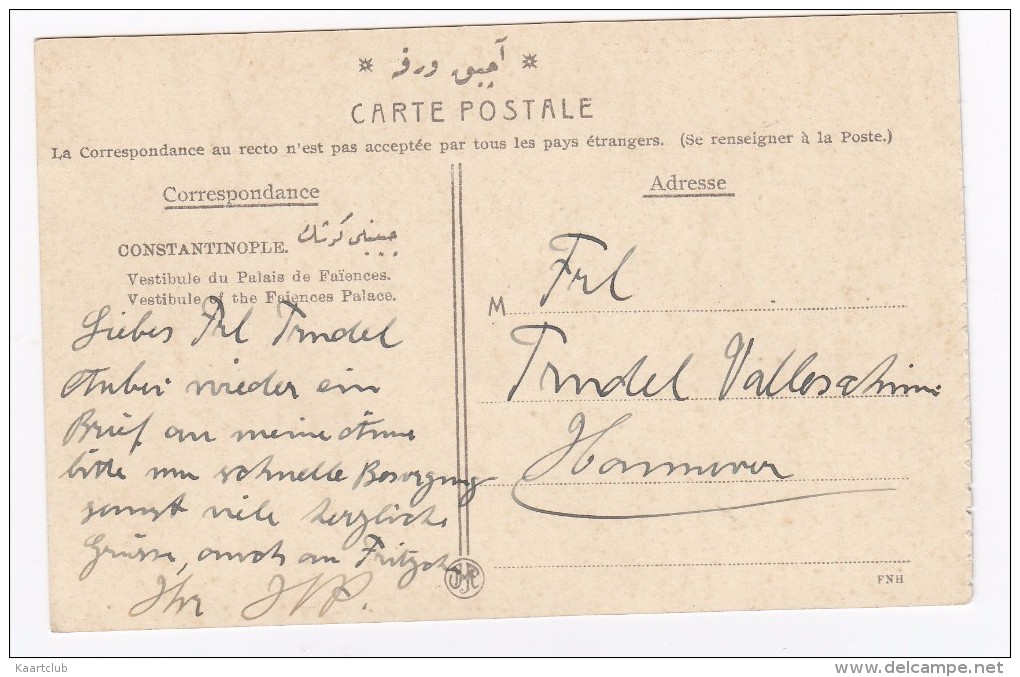 * آچیق ورقه *
CARTE POSTALE
La Correspondance au recto n'est pas acceptée par tous les pays étrangers. (Se renseigner à la Poste.)
Correspondance
CONSTANTINOPLE. چینیلی كوشك
Vestibule du Palais de Faïences.
Vestibule of the Faïences Palace.
Liebes Frl Trudel
Anbei wieder ein
Brief an meine
bitte um schnelle Besorgung
sonst viele herzliche
Grüsse, auch an Fritzch
Ihr
Adresse
M Frl
Trudel
Hannover
FNH
Kaartclub
http://www.delcampe.net